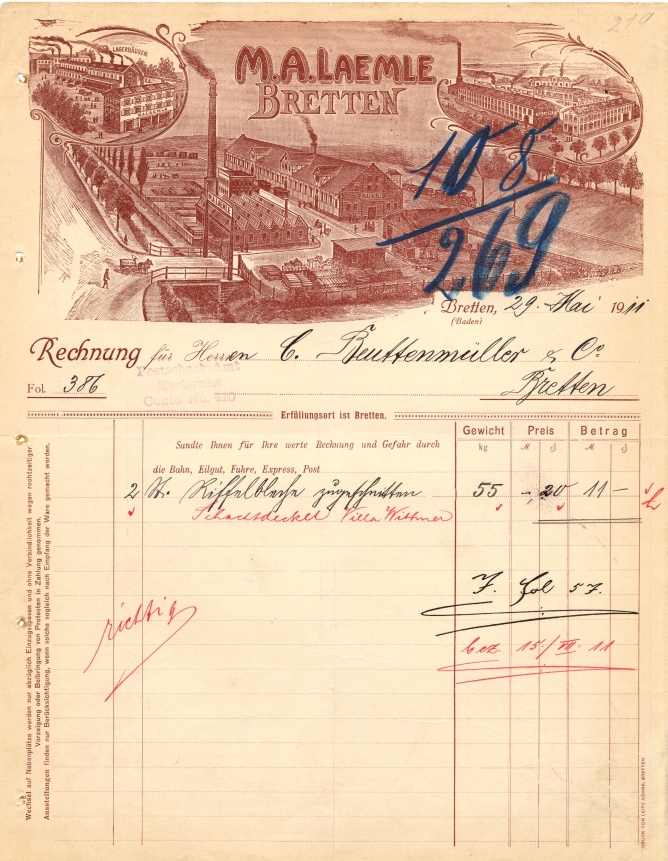 219
LAGERHÄUSER
M.A.LAEMLE
BRETTEN
10 8
269
Bretten, 29. Mai 1911
(Baden)
Rechnung für Herren C. Beuttenmüller & Co
Bretten
Postscheck Amt
Karlsruhe
Conto No. 410
Fol. 386
Erfüllungsort ist Bretten.
Gewicht Preis Betrag
kg M ₰ M ₰
Sandte Ihnen für Ihre werte Rechnung und Gefahr durch
die Bahn, Eilgut, Fuhre, Express, Post
2 St. Riffelbleche zugeschnitten 55 - 20 11 -
Schachtdeckel Villa Wittmer
J. fol 57.
richtig
bez 15./VII. 11
Wechsel auf Nebenplätze werden nur abzüglich Einzugsspesen und ohne Verbindlichkeit wegen rechtzeitiger
Vorzeigung oder Beibringung von Protesten in Zahlung genommen.
Ausstellungen finden nur Berücksichtigung, wenn solche sogleich nach Empfang der Ware gemacht werden.
DRUCK VON LEITZ SÖHNE, BRETTEN